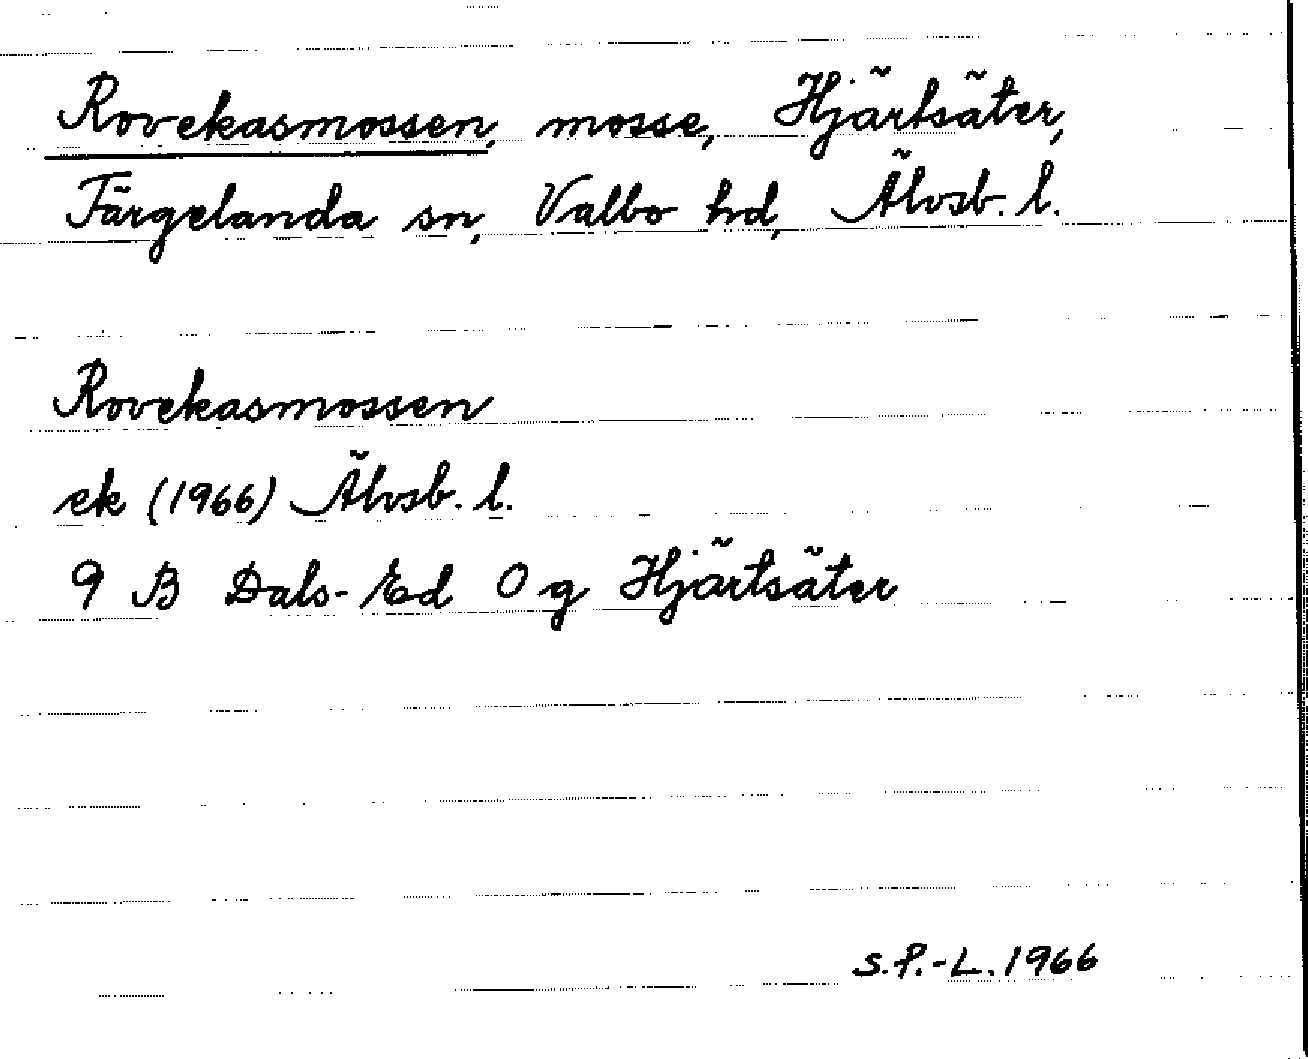 Rovekasmossen, mosse, Hjärtsäter,
Färgelanda sn, Valbo hd, Älvsb. l.
Rovekasmossen
ek (1966) Älvsb. l.
9 B Dals-Ed 0 g Hjärtsäter
S.P.-L. 1966